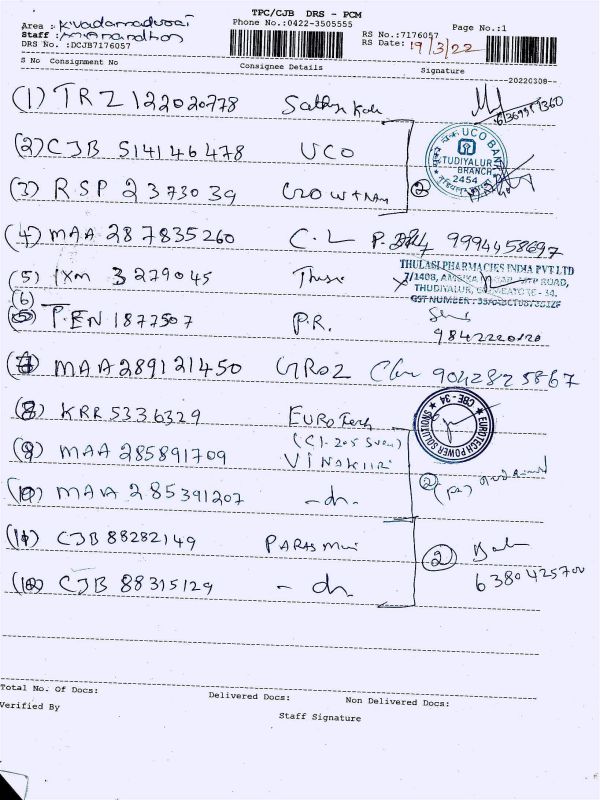 TPC/CJB DRS - PCM
Area : K.vadamadurai
Phone No.:0422-3505555
Page No.:1
Staff :
RS No.:7176057
DRS No. :DCJB7176057
RS Date: 19/3/22
S No Consignment No Consignee Details Signature
--20220308--
(1) TRZ 122020778
(2) CJB 514146478 UCO
UCO BANK
TUDIYALUR
BRANCH
2454
(3) RSP 2373039
(4) MAA 287835260 C.L 9994458697
THULASI PHARMACIES INDIA PVT LTD
(5) IXM 3279045
THUDIYALUR, COIMBATORE - 34.
GST NUMBER :
(6) P.EN 1877507 P.R.
9842220120
(7) MAA 289121450 GROZ 9042825867
(8) KRR 5336329 EUROTech
EUROTECH POWER SOLUTIONS
CBE-34
(9) MAA 285891709
(10) MAA 285391207 - do -
(11) CJB 88282149 PARAS
(2)
6380425700
(12) CJB 88315129 - do
Total No. Of Docs: Delivered Docs: Non Delivered Docs:
Verified By
Staff Signature